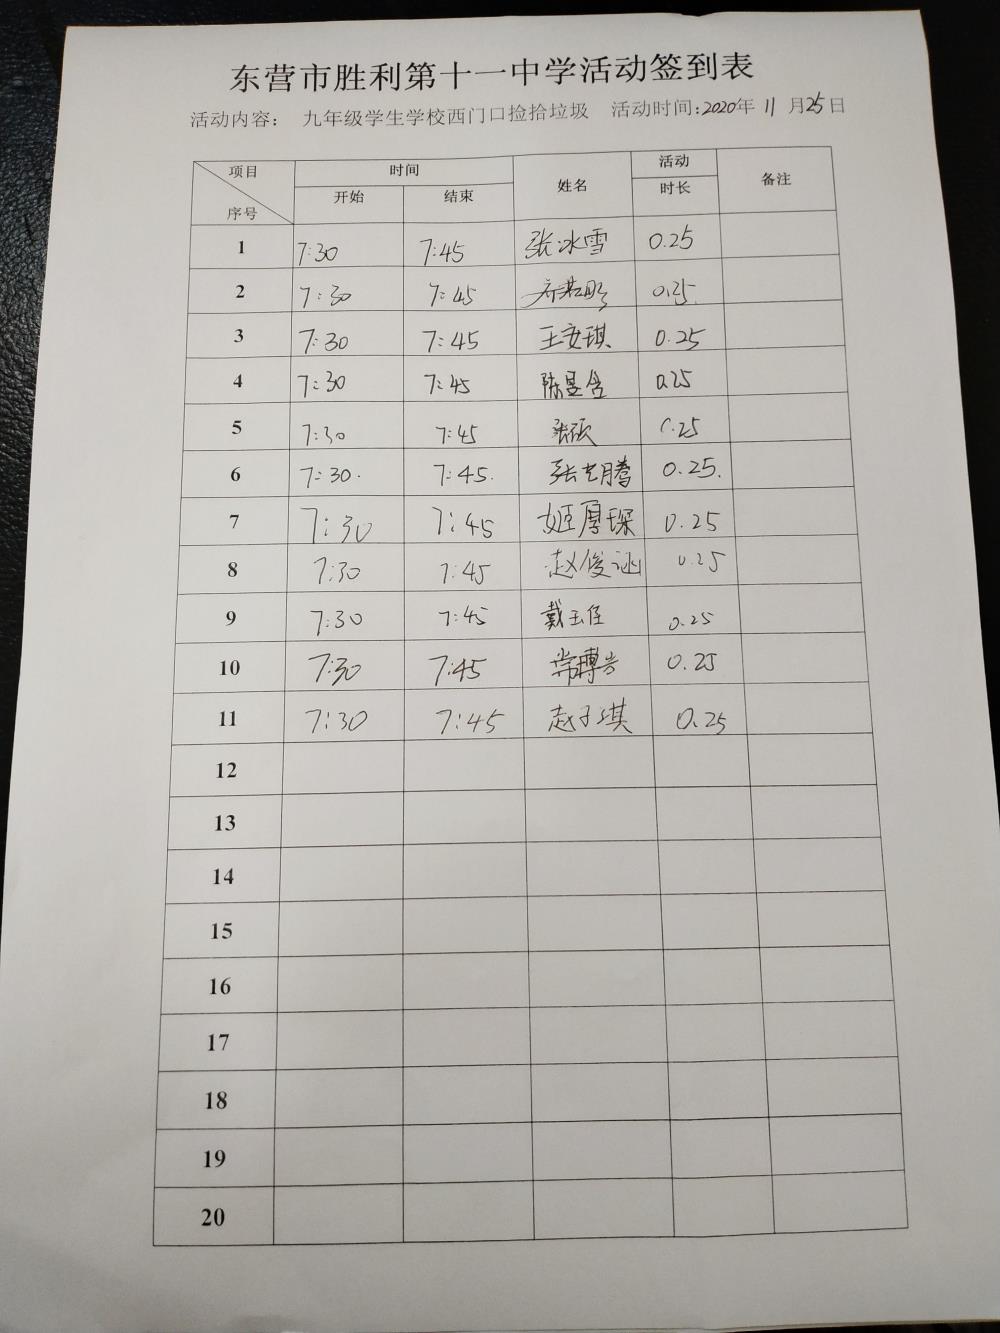 东营市胜利第十一中学活动签到表
活动内容： 九年级学生学校西门口捡拾垃圾 活动时间:2020年 11 月25日
项目 时间 姓名 活动 备注
序号 开始 结束 时长
1 7:30 7:45 张冰雪 0.25
2 7:30 7:45 0.25
3 7:30 7:45 王安琪 0.25
4 7:30 7:45 0.25
5 7:30 7:45 张硕 0.25
6 7:30. 7:45. 0.25.
7 7:30 7:45 姬厚琛 0.25
8 7:30 7:45 0.25
9 7:30 7:45 戴玉佳 0.25
10 7:30 7:45 常博兴 0.25
11 7:30 7:45 赵子琪 0.25
12
13
14
15
16
17
18
19
20